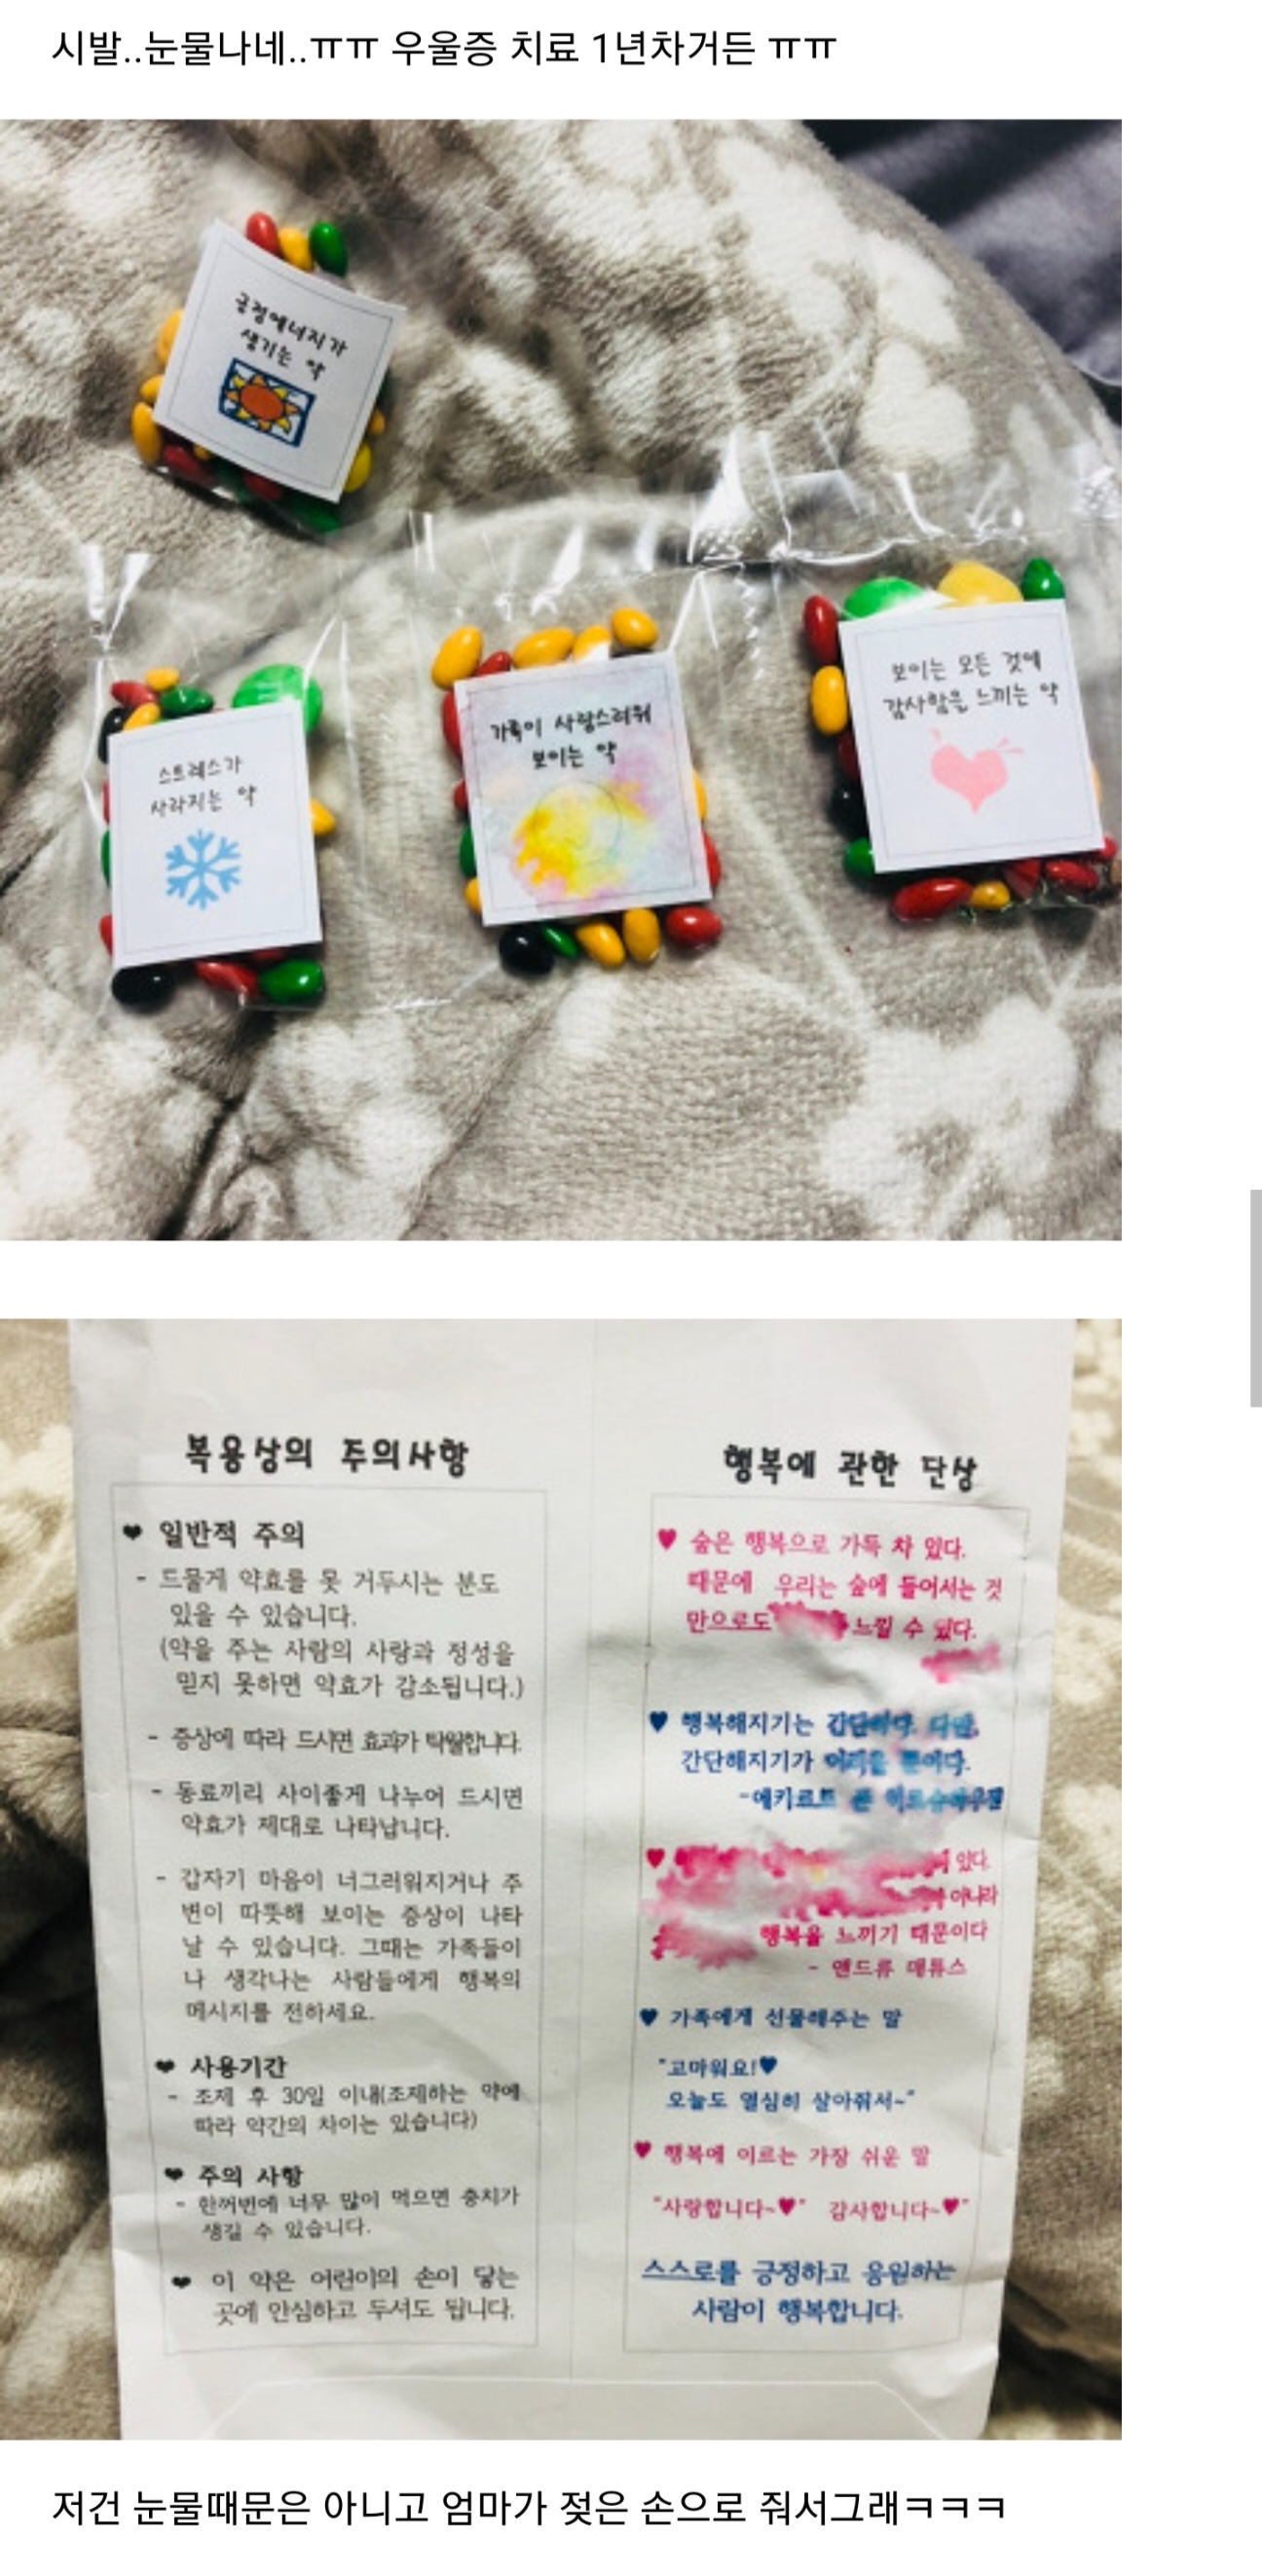 시발..눈물나네..ㅠㅠ 우울증 치료 1년차거든 ㅠㅠ
긍정에너지가
생기는 약
스트레스가
사라지는 약
가족이 사랑스러워
보이는 약
보이는 모든 것에
감사함을 느끼는 약
복용상의 주의사항
♥ 일반적 주의
- 드물게 약효를 못 거두시는 분도
있을 수 있습니다.
(약을 주는 사람의 사랑과 정성을
믿지 못하면 약효가 감소됩니다.)
- 증상에 따라 드시면 효과가 탁월합니다.
- 동료끼리 사이좋게 나누어 드시면
약효가 제대로 나타납니다.
- 갑자기 마음이 너그러워지거나 주
변이 따뜻해 보이는 증상이 나타
날 수 있습니다. 그때는 가족들이
나 생각나는 사람들에게 행복의
메시지를 전하세요.
♥ 사용기간
- 조제 후 30일 이내(조제하는 약에
따라 약간의 차이는 있습니다)
♥ 주의 사항
- 한꺼번에 너무 많이 먹으면 충치가
생길 수 있습니다.
♥ 이 약은 어린이의 손이 닿는
곳에 안심하고 두셔도 됩니다.
행복에 관한 단상
♥ 숲은 행복으로 가득 차 있다.
때문에 우리는 숲에 들어서는 것
만으로도 느낄 수 있다.
♥ 행복해지기는 간단하다. 다만,
간단해지기가 어려울 뿐이다.
-에카르트 폰
♥ 있다.
아니라
행복을 느끼기 때문이다
- 앤드류 매튜스
♥ 가족에게 선물해주는 말
"고마워요!♥
오늘도 열심히 살아줘서~"
♥ 행복에 이르는 가장 쉬운 말
"사랑합니다~♥" 감사합니다~♥"
스스로를 긍정하고 응원하는
사람이 행복합니다.
저건 눈물때문은 아니고 엄마가 젖은 손으로 줘서그래ㅋㅋㅋ